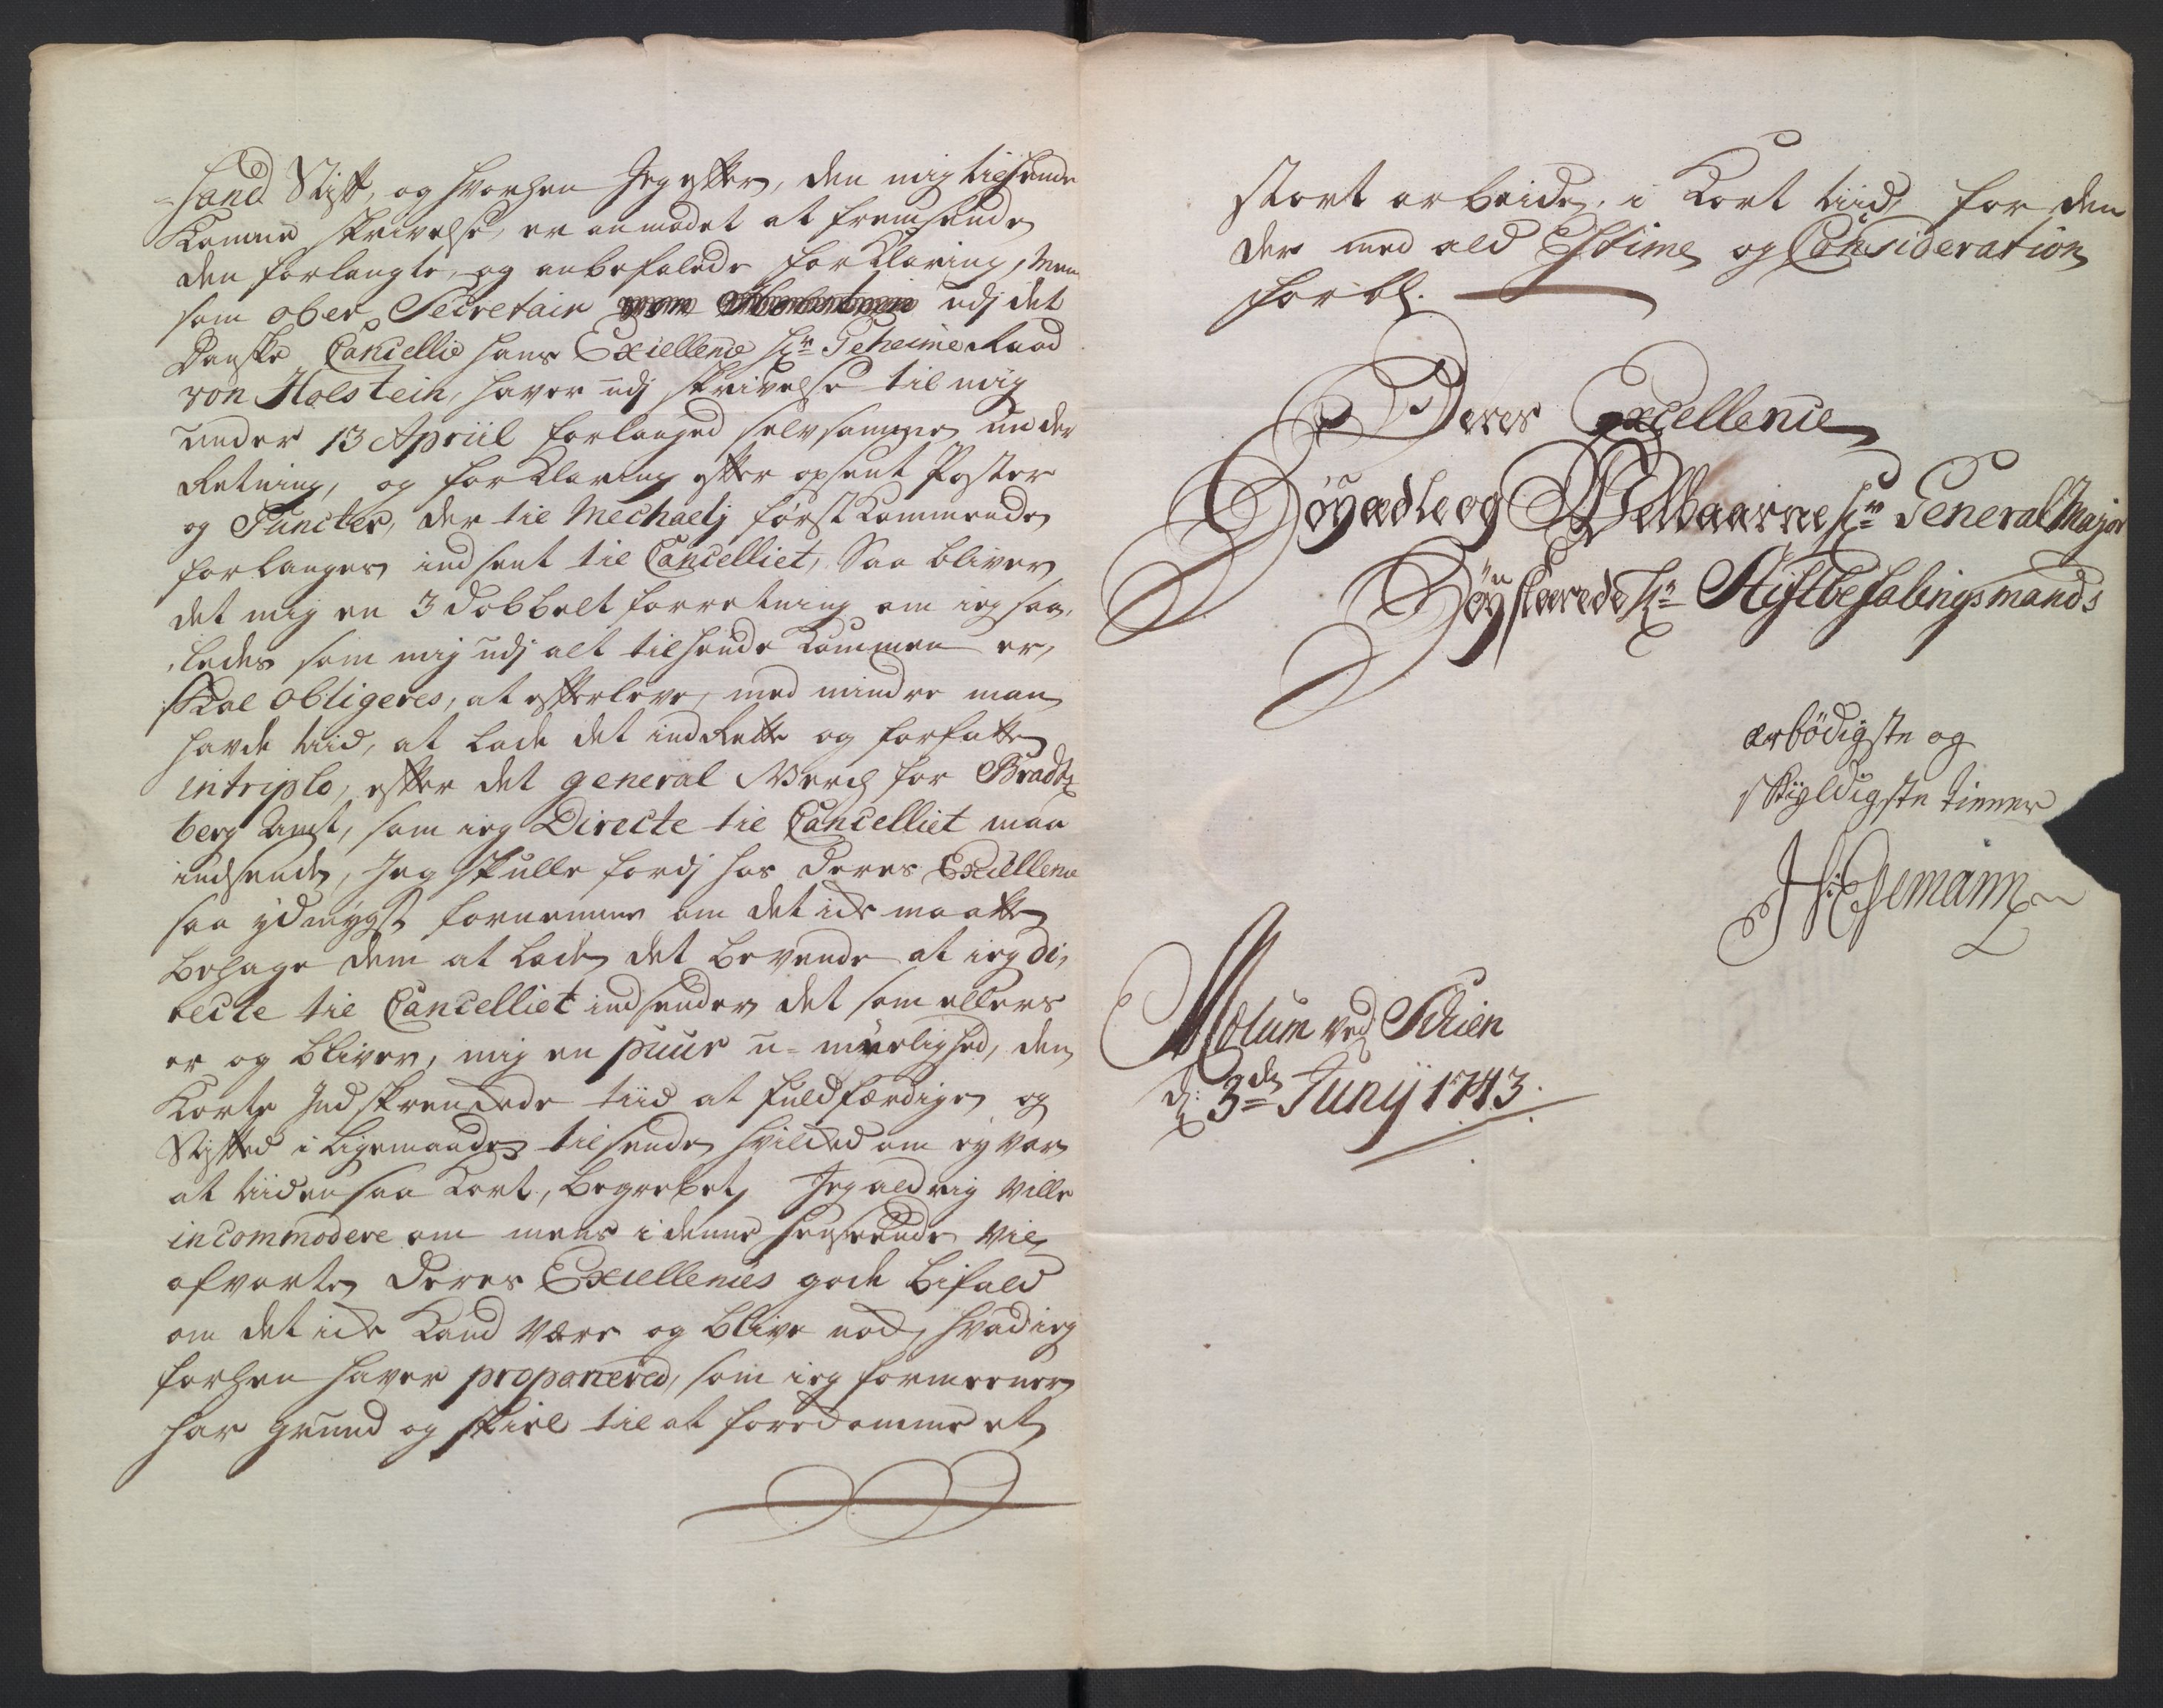 =sand Stift, og hvorhen Jeg efter, den mig tilhende
Komne skrivelse, er anmodet at fremsende
den forlangte, og anbefalede forklaring, Men
som ober Secretair udj det
Danske Cancellie hans Excellence Hr: Geheime Raad
von Holstein, haver udj skrivelse til mig
under 13 Apriil forlanged selvsamme under
Retning, og forklaring efter opsent Poster
og Puncter, der til Mechaelj førstkommende
forlanges indsent til Cancelliet, Saa bliver
det mig en 3 dobbelt forretning om ieg saa,
,ledes som mig udj alt tilhende kommen er,
skal obligeres, at efterleve, med mindre man
havde tiid, at lade det indRette og forfatte
in triplo, efter det general Verch for Bradtz
berg Amt, som ieg Directe til Cancelliet maa
indsende, Jeg skulle fordj hos Deres Excellence
saa ydmygst fornemme om det icke maatte
behage dem at lade det beroende at ieg di,
recte til Cancelliet indsender det som ellers
er og bliver, mig en puur u=muelighed, den
Korte Indskrenckede tiid at fuldfærdige og
Stiftet i ligemaade tilsende hvilcked om ey var
at tiiden saa kort, begrebet, Jeg aldrig ville
incommodere om mens i denne henseende vil
afvarte Deres Excellences gode bifald
om det icke kand være og blive nock, hvad ieg
forhen haver proponered, som ieg formeener
har grund og skiel til at forekomme et
stort arbeide, i kort tiid, for den
der med ald Estime og Consideration
forbl.
Deres Excellence
Høyædle og Velbaarne Hr: General Major
Høystærede Hr: Stiftbefalingsmands
ærbödigste og
skyldigste tienner
H: Esmann
Mælum ved Schien
d: 3de Junij 1743.